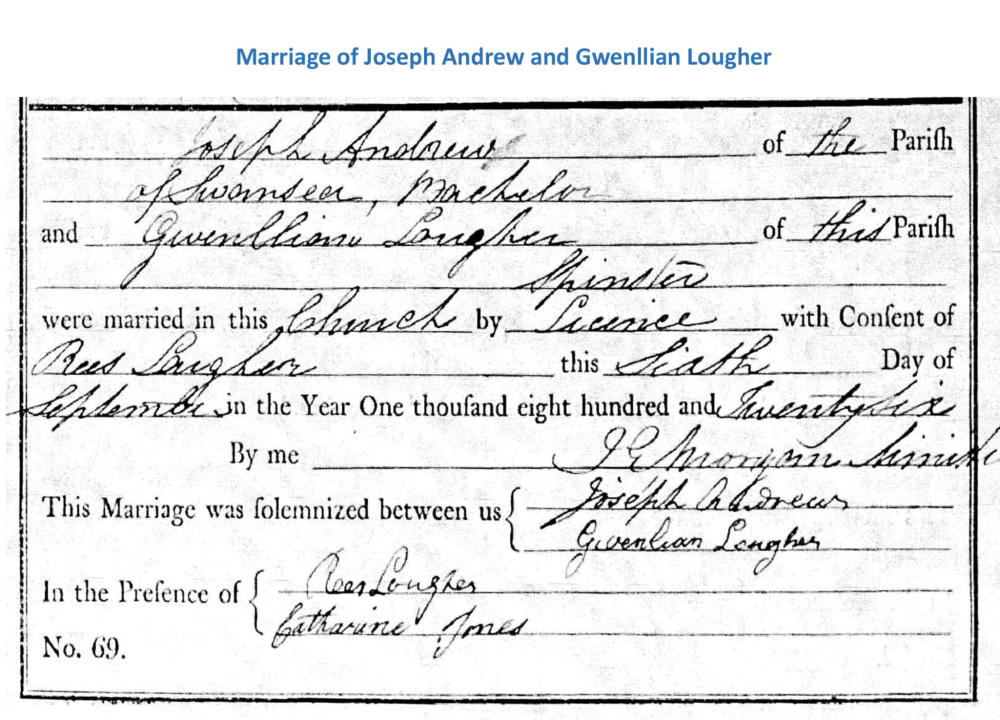 Marriage of Joseph Andrew and Gwenllian Lougher
Joseph Andrew of the Pariſh
of Swansea, Bachelor
and Gwenllian Lougher of this Pariſh
Spinster
were married in this Church by Licence with Conſent of
Rees Lougher this Sixth Day of
September in the Year One thouſand eight hundred and Twenty six
By me J E Morgan Minister
This Marriage was ſolemnized between us { Joseph Andrew
Gwenlian Lougher
In the Preſence of { Rees Lougher
Catharine Jones
No. 69.